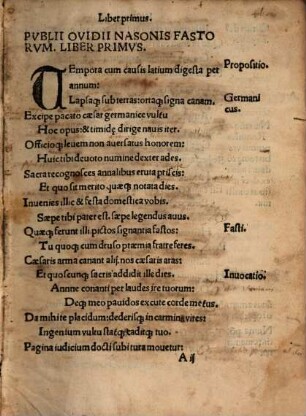 Liber primus.
PVBLII OVIDII NASONIS FASTO
RVM. LIBER PRIMVS.
TEmpora cum causis latium digesta per
annum:
Lapsaq; sub terras: ortaq; signa canam.
Excipe pacato cæsar germanice vultu
Hoc opus: & timidę dirige nauis iter.
Officioq; leuem non auersatus honorem:
Huic tibi deuoto numine dexter ades.
Sacra recognosces annalibus eruta priscis:
Et quo sit merito quæq; notata dies.
Inuenies illic & festa domestica vobis.
Sæpe tibi pater est. sæpe legendus auus.
Quæq; ferunt illi pictos signantia fastos:
Tu quoq; cum druso præmia fratre feres.
Cæsaris arma canant alii. nos cæsaris aras:
Et quoscunq; sacris addidit ille dies.
Annue conanti per laudes ire tuorum:
Deq; meo pauidos excute corde metus.
Da mihi te placidum: dederisq; in carmina vires:
Ingenium vultu statq; caditq; tuo.
Pagina iudicium docti subitura mouetur:
A ij
Propositio.
Germani
cus.
Fasti.
Inuocatio.